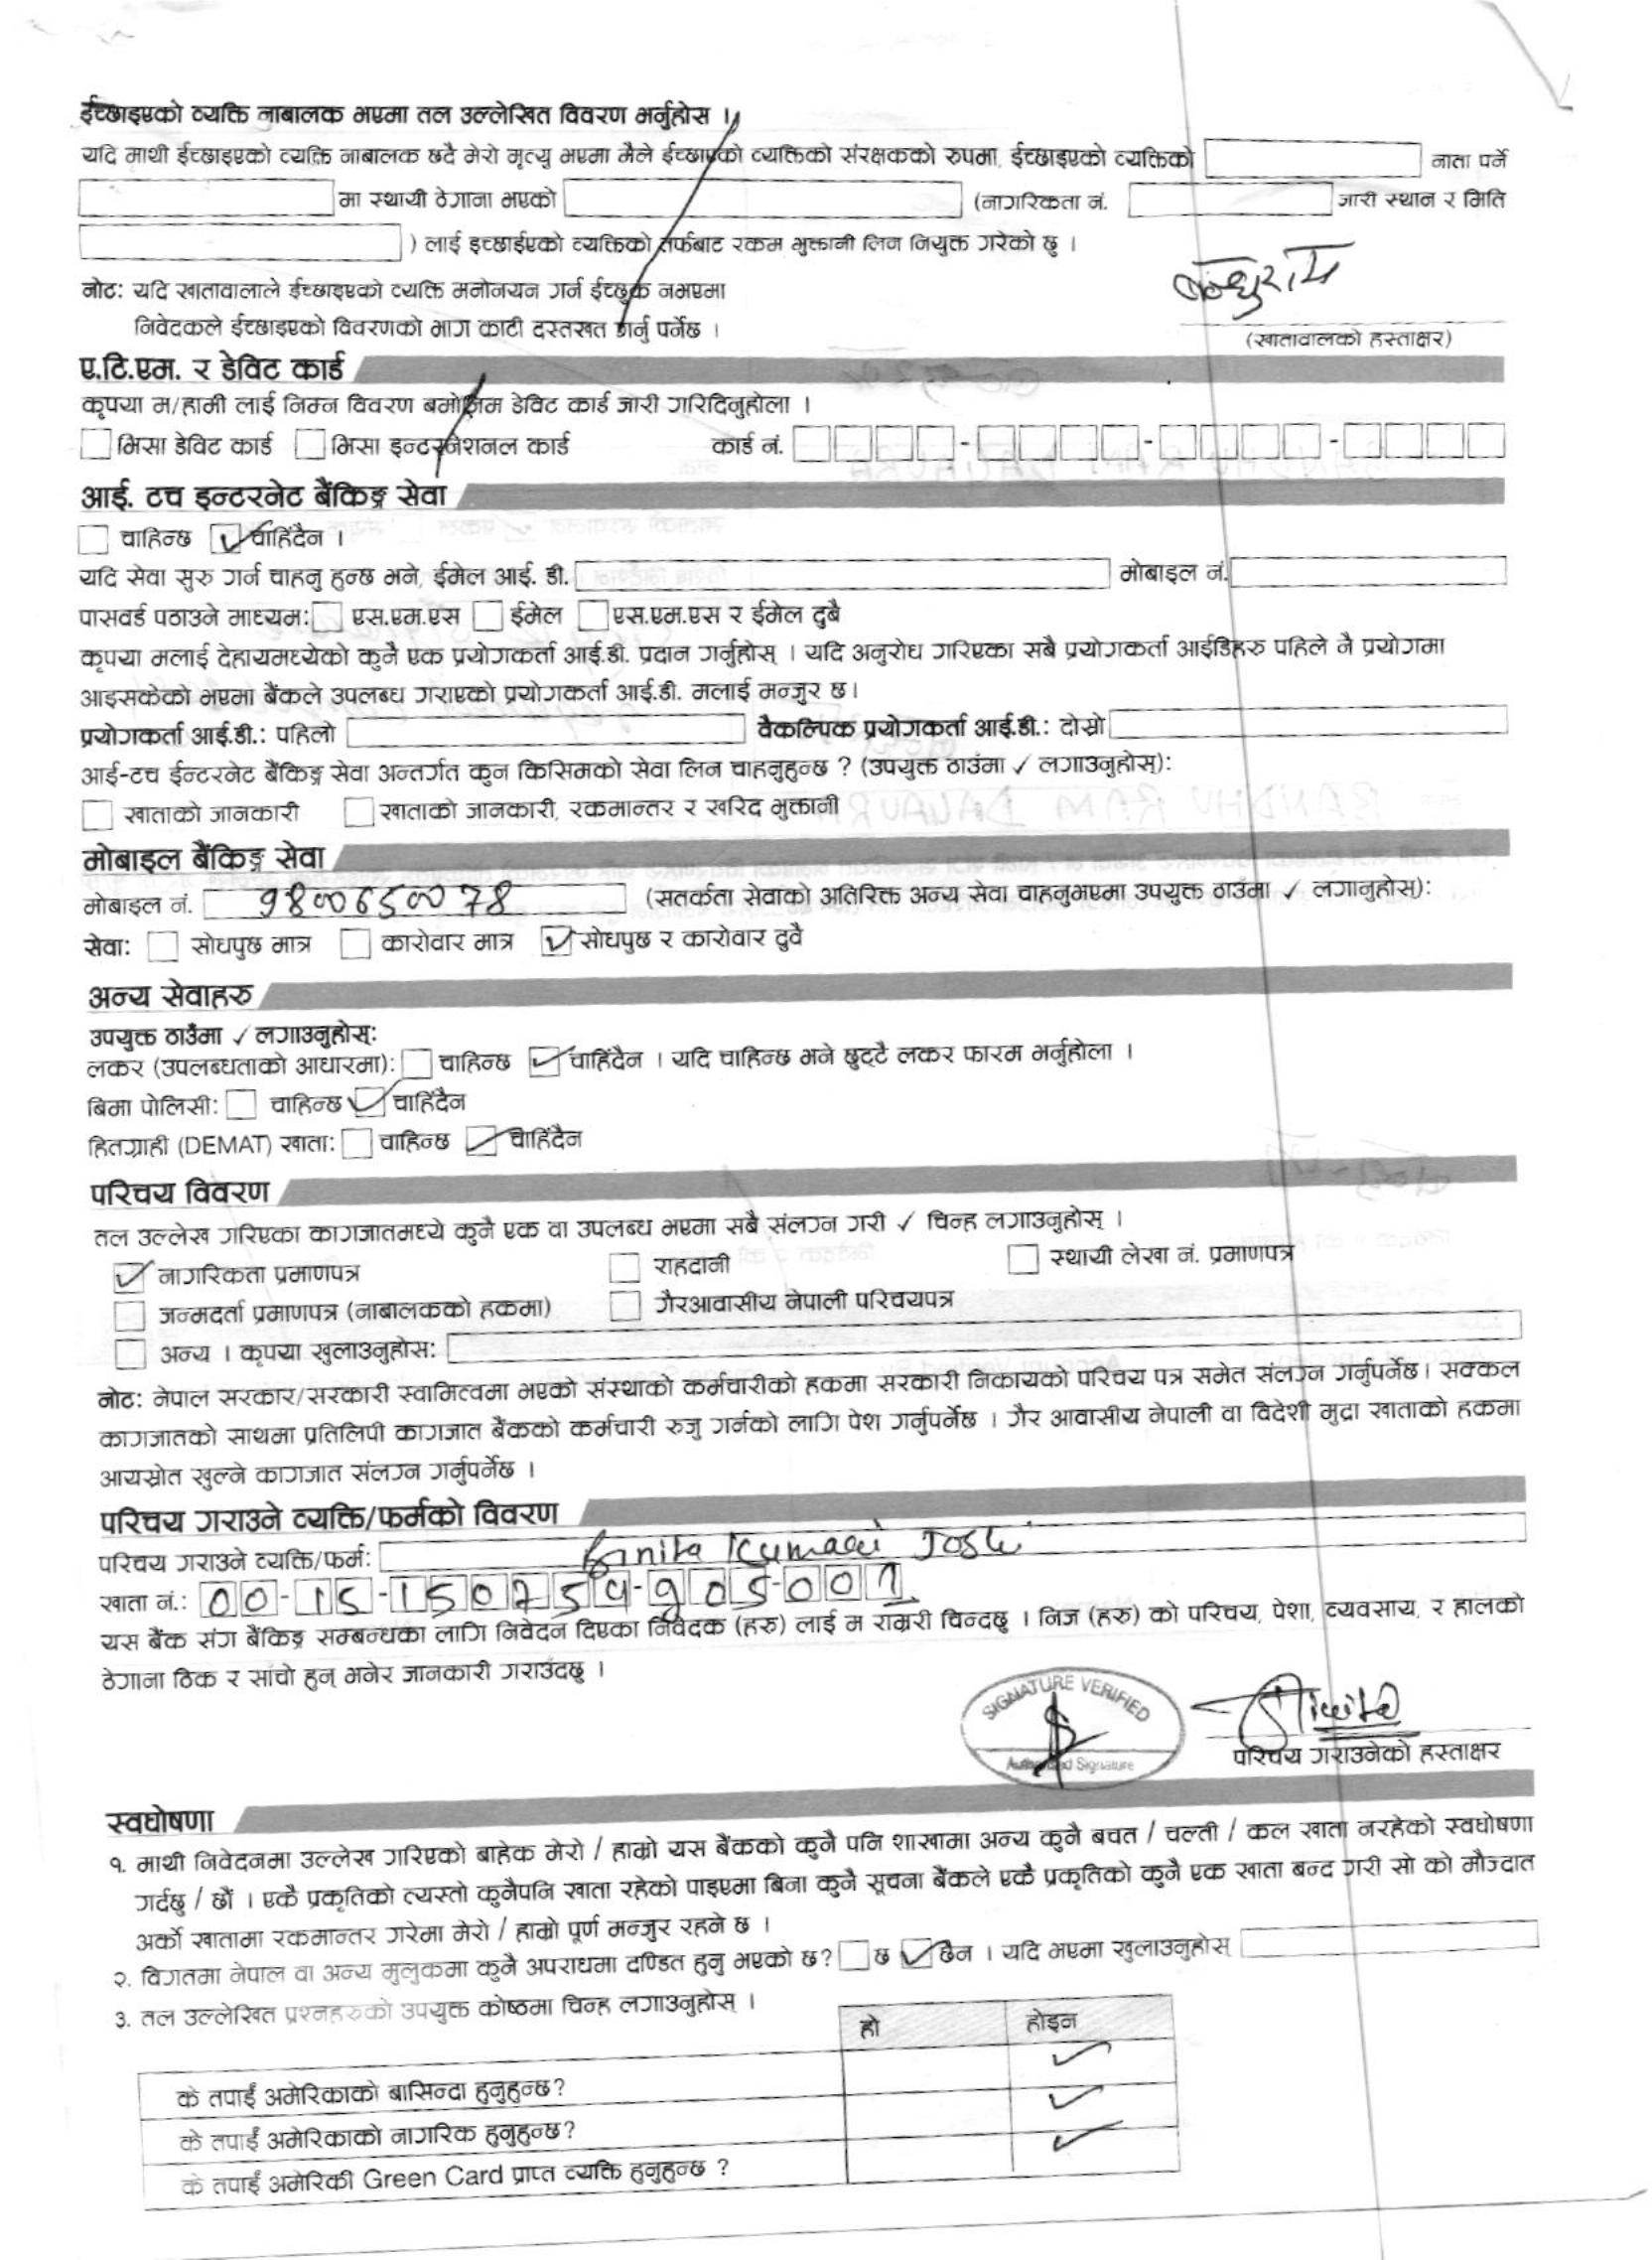 ईच्छाइएको व्यक्ति नाबालक भएमा तल उल्लेखित विवरण भर्नुहोस ।
यदि माथी ईच्छाइएको व्यक्ति नाबालक छदै मेरो मृत्यु भएमा मैले ईच्छाएको व्यक्तिको संरक्षकको रुपमा, ईच्छाइएको व्यक्तिको नाता पर्ने
मा स्थायी ठेगाना भएको (नागरिकता नं. जारी स्थान र मिति
) लाई इच्छाईएको व्यक्तिको तर्फबाट रकम भुक्तानी लिन नियुक्त गरेको छु ।
नोट: यदि खातावालाले ईच्छाइएको व्यक्ति मनोनयन गर्न ईच्छुक नभएमा
निवेदकले ईच्छाइएको विवरणको भाग काटी दस्तखत गर्नु पर्नेछ ।
बन्धुराम
(खातावालको हस्ताक्षर)
ए.टि.एम. र डेविट कार्ड
कृपया म/हामी लाई निम्न विवरण बमोजिम डेविट कार्ड जारी गरिदिनुहोला ।
भिसा डेविट कार्ड भिसा इन्टरनेशनल कार्ड कार्ड नं. - - -
आई. टच इन्टरनेट बैंकिङ्ग सेवा
चाहिन्छ ✓ चाहिंदैन ।
यदि सेवा सुरु गर्न चाहनु हुन्छ भने, ईमेल आई. डी. मोबाइल नं.
पासवर्ड पठाउने माध्यम: एस.एम.एस ईमेल एस.एम.एस र ईमेल दुबै
कृपया मलाई देहायमध्येको कुनै एक प्रयोगकर्ता आई.डी. प्रदान गर्नुहोस् । यदि अनुरोध गरिएका सबै प्रयोगकर्ता आईडिहरु पहिले नै प्रयोगमा
आइसकेको भएमा बैंकले उपलब्ध गराएको प्रयोगकर्ता आई.डी. मलाई मन्जुर छ।
प्रयोगकर्ता आई.डी.: पहिलो वैकल्पिक प्रयोगकर्ता आई.डी.: दोस्रो
आई-टच ईन्टरनेट बैंकिङ्ग सेवा अन्तर्गत कुन किसिमको सेवा लिन चाहनुहुन्छ ? (उपयुक्त ठाउंमा ✓ लगाउनुहोस्):
खाताको जानकारी खाताको जानकारी, रकमान्तर र खरिद भुक्तानी
मोबाइल बैंकिङ्ग सेवा
मोबाइल नं. 9800650078 (सतर्कता सेवाको अतिरिक्त अन्य सेवा चाहनुभएमा उपयुक्त ठाउंमा ✓ लगानुहोस):
सेवा: सोधपुछ मात्र कारोवार मात्र ✓ सोधपुछ र कारोवार दुवै
अन्य सेवाहरु
उपयुक्त ठाउँमा ✓ लगाउनुहोस्:
लकर (उपलब्धताको आधारमा): चाहिन्छ ✓ चाहिंदैन । यदि चाहिन्छ भने छुट्टै लकर फारम भर्नुहोला ।
बिमा पोलिसी: चाहिन्छ ✓ चाहिंदैन
हितग्राही (DEMAT) खाता: चाहिन्छ ✓ चाहिंदैन
परिचय विवरण
तल उल्लेख गरिएका कागजातमध्ये कुनै एक वा उपलब्ध भएमा सबै संलग्न गरी ✓ चिन्ह लगाउनुहोस् ।
✓ नागरिकता प्रमाणपत्र राहदानी स्थायी लेखा नं. प्रमाणपत्र
जन्मदर्ता प्रमाणपत्र (नाबालकको हकमा) गैरआवासीय नेपाली परिचयपत्र
अन्य । कृपया खुलाउनुहोस:
नोट: नेपाल सरकार/सरकारी स्वामित्वमा भएको संस्थाको कर्मचारीको हकमा सरकारी निकायको परिचय पत्र समेत संलग्न गर्नुपर्नेछ। सक्कल
कागजातको साथमा प्रतिलिपी कागजात बैंकको कर्मचारी रुजु गर्नको लागि पेश गर्नुपर्नेछ । गैर आवासीय नेपाली वा विदेशी मुद्रा खाताको हकमा
आयस्रोत खुल्ने कागजात संलग्न गर्नुपर्नेछ ।
परिचय गराउने व्यक्ति/फर्मको विवरण
परिचय गराउने व्यक्ति/फर्म: Kumari Joshi
खाता नं.: 00-15-150754-905-001
यस बैंक संग बैंकिङ्ग सम्बन्धका लागि निवेदन दिएका निवेदक (हरु) लाई म राम्ररी चिन्दछु । निज (हरु) को परिचय, पेशा, व्यवसाय, र हालको
ठेगाना ठिक र सांचो हुन् भनेर जानकारी गराउँदछु ।
SIGNATURE VERIFIED
Authorized Signature
परिचय गराउनेको हस्ताक्षर
स्वघोषणा
१. माथी निवेदनमा उल्लेख गरिएको बाहेक मेरो / हाम्रो यस बैंकको कुनै पनि शाखामा अन्य कुनै बचत / चल्ती / कल खाता नरहेको स्वघोषणा
गर्दछु / छौं । एकै प्रकृतिको त्यस्तो कुनैपनि खाता रहेको पाइएमा बिना कुनै सूचना बैंकले एकै प्रकृतिको कुनै एक खाता बन्द गरी सो को मौज्दात
अर्को खातामा रकमान्तर गरेमा मेरो / हाम्रो पूर्ण मन्जुर रहने छ ।
२. विगतमा नेपाल वा अन्य मुलुकमा कुनै अपराधमा दण्डित हुनु भएको छ? छ ✓ छैन । यदि भएमा खुलाउनुहोस्
३. तल उल्लेखित प्रश्नहरुको उपयुक्त कोष्ठमा चिन्ह लगाउनुहोस् ।
हो होइन
के तपाईं अमेरिकाको बासिन्दा हुनुहुन्छ? ✓
के तपाईं अमेरिकाको नागरिक हुनुहुन्छ? ✓
के तपाईं अमेरिकी Green Card प्राप्त व्यक्ति हुनुहुन्छ ? ✓